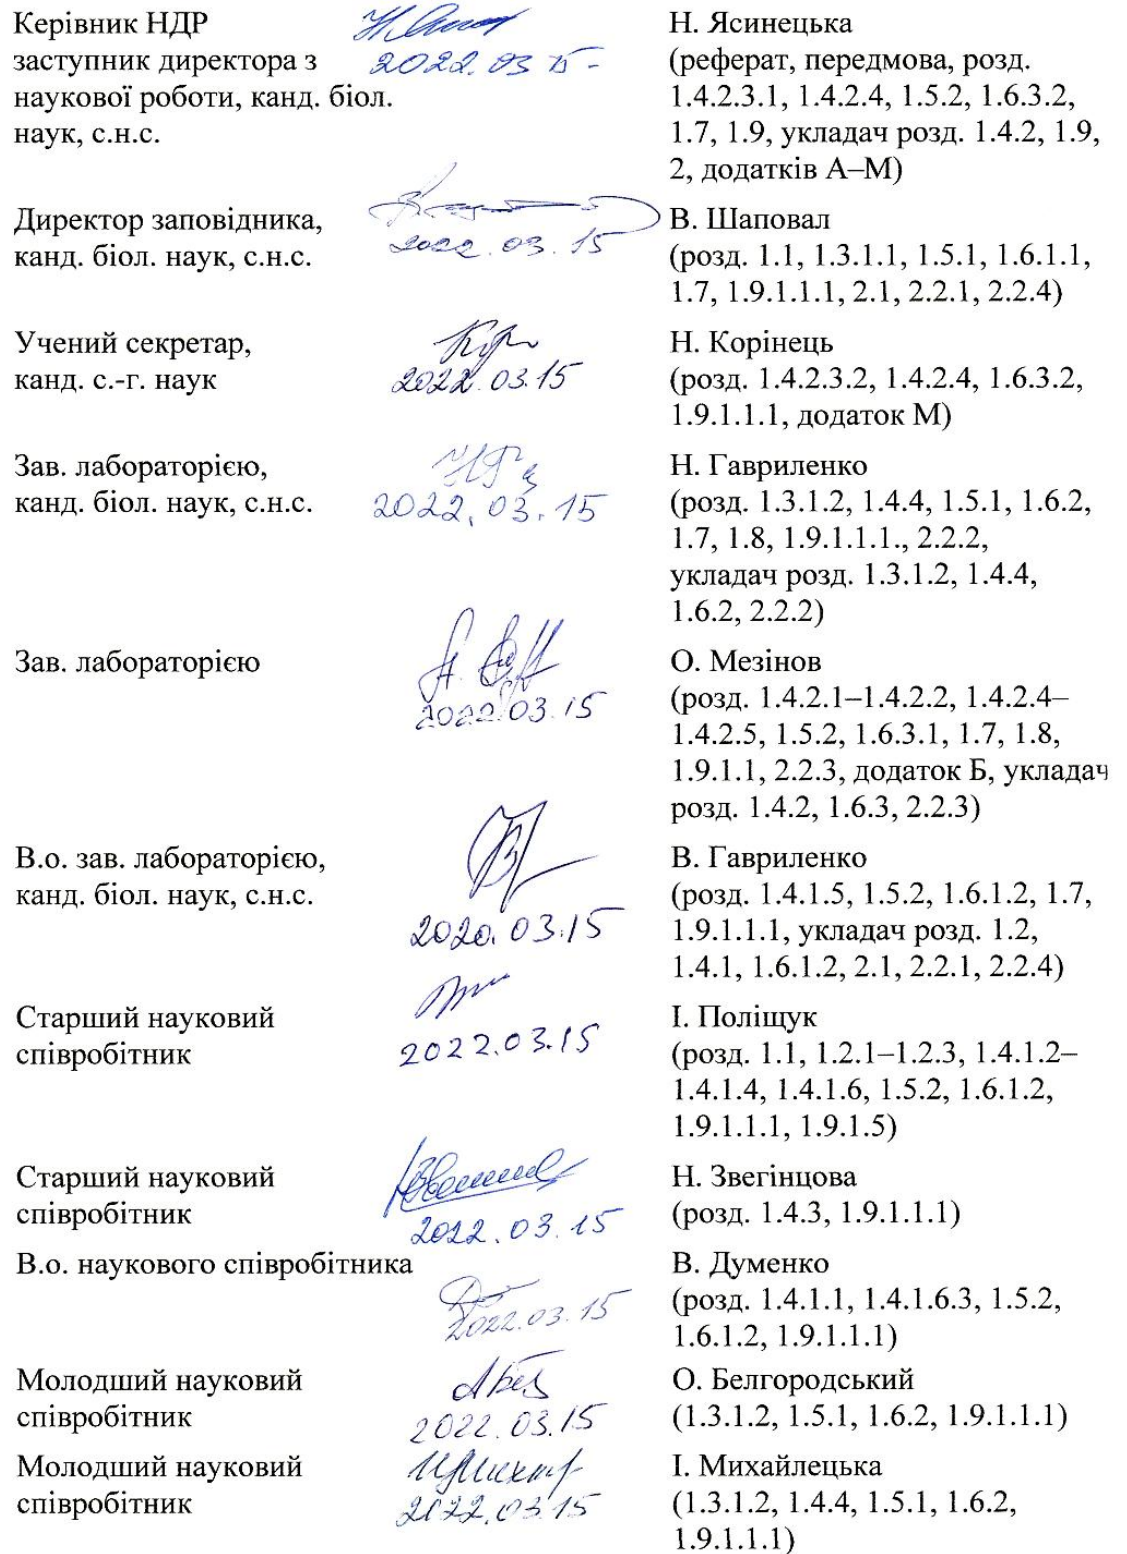 Керівник НДР
заступник директора з
наукової роботи, канд. біол.
наук, с.н.с.
2022.03.15
Н. Ясинецька
(реферат, передмова, розд.
1.4.2.3.1, 1.4.2.4, 1.5.2, 1.6.3.2,
1.7, 1.9, укладач розд. 1.4.2, 1.9,
2, додатків А–М)
Директор заповідника,
канд. біол. наук, с.н.с.
2022.03.15
В. Шаповал
(розд. 1.1, 1.3.1.1, 1.5.1, 1.6.1.1,
1.7, 1.9.1.1.1, 2.1, 2.2.1, 2.2.4)
Учений секретар,
канд. с.-г. наук
2022.03.15
Н. Корінець
(розд. 1.4.2.3.2, 1.4.2.4, 1.6.3.2,
1.9.1.1.1, додаток М)
Зав. лабораторією,
канд. біол. наук, с.н.с.
2022.03.15
Н. Гавриленко
(розд. 1.3.1.2, 1.4.4, 1.5.1, 1.6.2,
1.7, 1.8, 1.9.1.1.1., 2.2.2,
укладач розд. 1.3.1.2, 1.4.4,
1.6.2, 2.2.2)
Зав. лабораторією
2022.03.15
О. Мезінов
(розд. 1.4.2.1–1.4.2.2, 1.4.2.4–
1.4.2.5, 1.5.2, 1.6.3.1, 1.7, 1.8,
1.9.1.1, 2.2.3, додаток Б, укладач
розд. 1.4.2, 1.6.3, 2.2.3)
В.о. зав. лабораторією,
канд. біол. наук, с.н.с.
2020.03.15
В. Гавриленко
(розд. 1.4.1.5, 1.5.2, 1.6.1.2, 1.7,
1.9.1.1.1, укладач розд. 1.2,
1.4.1, 1.6.1.2, 2.1, 2.2.1, 2.2.4)
Старший науковий
співробітник
2022.03.15
І. Поліщук
(розд. 1.1, 1.2.1–1.2.3, 1.4.1.2–
1.4.1.4, 1.4.1.6, 1.5.2, 1.6.1.2,
1.9.1.1.1, 1.9.1.5)
Старший науковий
співробітник
2022.03.15
Н. Звегінцова
(розд. 1.4.3, 1.9.1.1.1)
В.о. наукового співробітника
2022.03.15
В. Думенко
(розд. 1.4.1.1, 1.4.1.6.3, 1.5.2,
1.6.1.2, 1.9.1.1.1)
Молодший науковий
співробітник
2022.03.15
О. Белгородський
(1.3.1.2, 1.5.1, 1.6.2, 1.9.1.1.1)
Молодший науковий
співробітник
2022.03.15
І. Михайлецька
(1.3.1.2, 1.4.4, 1.5.1, 1.6.2,
1.9.1.1.1)